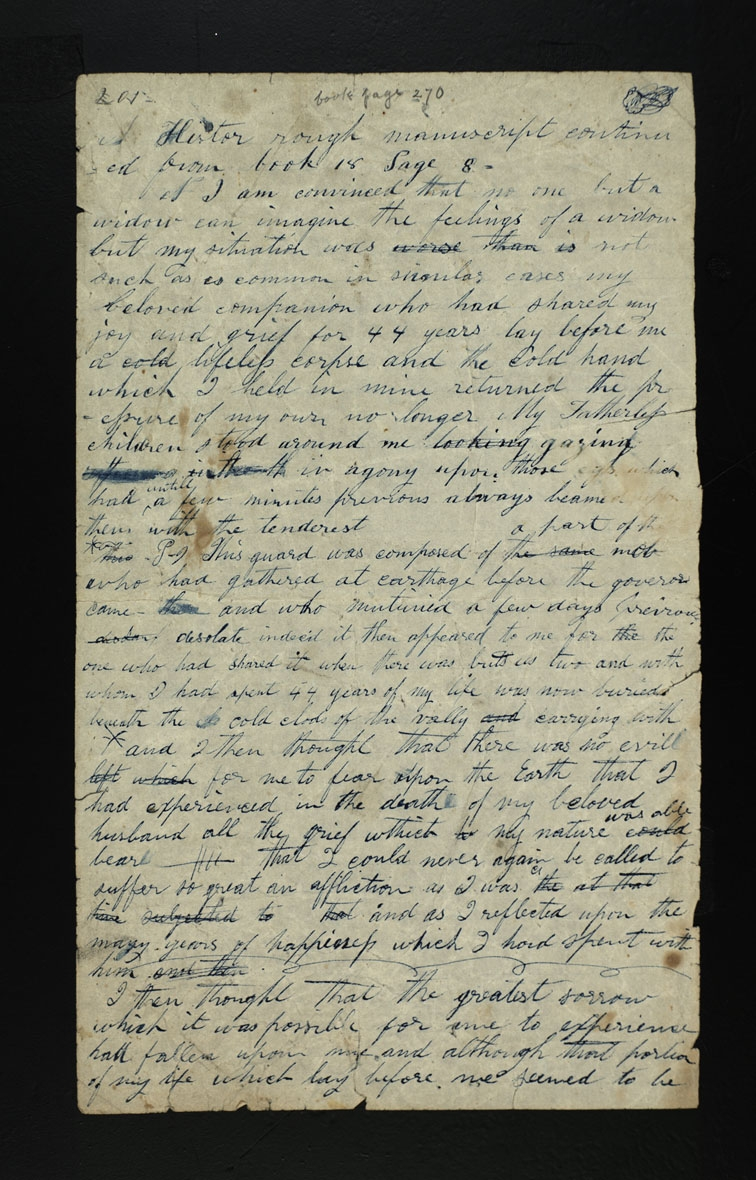 205-
book page 270
Histor rough manuscript continu
-ed from book 18 Page 8-
I am convinced that no one but a
widow can imagine the feelings of a widow
but my situation was worse than is not
such as is common in similar cases my
beloved companion who had shared my
joy and grief for 44 years lay before me
a cold lifeless corpse and the cold hand
which I held in mine returned the pr
-essure of my own no longer My Fatherless
children stood around me looking gazing
in agony upon those eyes which
untill
had a few minutes previous always beamed
them with the tenderest a part of th
This P-9 This guard was composed of the same mob
who had gathered at carthage before the governor
came- and who mutinied a few days previous
desolate indeed it then appeared to me for the the
one who had shared it when there was but us two and with
whom I had spent 44 years of my life was now buried
beneath the cold clods of the vally and carrying with
X and I then thought that there was no evill
left which for me to fear upon the Earth that I
had experienced in the death of my beloved
was able
husband all the grief which my nature could
bear that I could never again be called to
suffer so great an affliction as I was the at that
time subjected to that and as I reflected upon the
many years of happieness which I had spent with
him and then
I then thought that the greatest sorrow
which it was possible for me to experience
had fallen upon me and although that portion
of my life which lay before me seemed to be